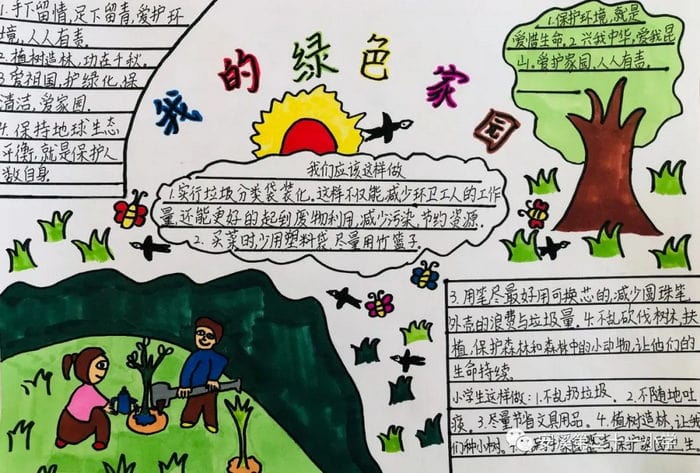 我的绿色家园
1.手下留情,足下留青,爱护环
境,人人有责.
2.植树造林,功在千秋.
3.爱祖国,护绿化,保
清洁,爱家园.
4.保持地球生态
平衡,就是保护人
类自身.
1.保护环境,就是
爱惜生命.2.兴我中华,爱我昆
山.爱护家园,人人有责.
我们应该这样做
1.实行垃圾分类袋装化.这样不仅能减少环卫工人的工作
量,还能更好的起到废物利用,减少污染,节约资源.
2.买菜时,少用塑料袋,尽量用竹篮子.
3.用笔尽最好用可换芯的,减少圆珠笔
外壳的浪费与垃圾量.4.不乱砍伐树林,扶
植,保护森林和森林中的小动物,让他们的
生命持续.
小学生这样做:1.不乱扔垃圾.2.不随地吐
痰.3.尽量节省文具用品.4.植树造林,让我
们种小树.